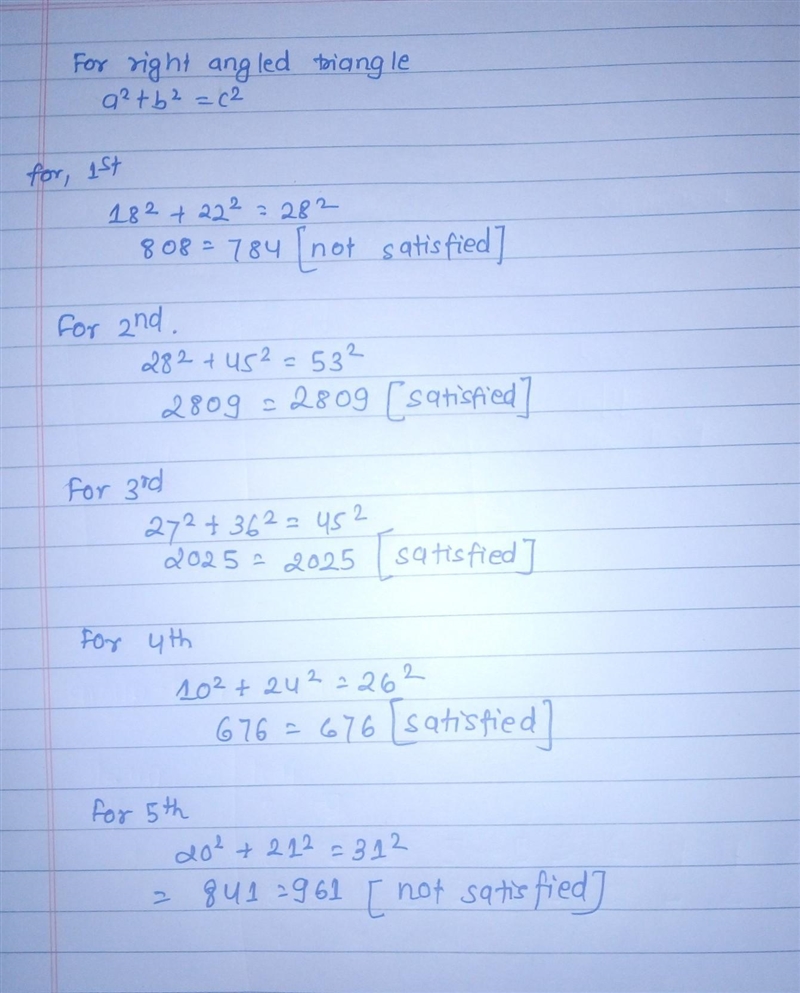 For right angled triangle
a² + b² = c²
for, 1st
18² + 22² = 28²
808 = 784 [not satisfied]
For 2nd.
28² + 45² = 53²
2809 = 2809 [satisfied]
For 3rd
27² + 36² = 45²
2025 = 2025 [satisfied]
For 4th
10² + 24² = 26²
676 = 676 [satisfied]
For 5th
20² + 21² = 31²
= 841 = 961 [not satisfied]